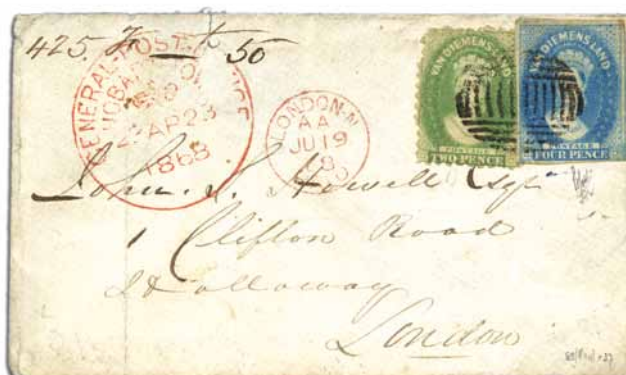 425 50
GENERAL POST OFFICE
HOBART TOWN
AP 23
1868
LONDON-N
AA
JU 19
8
VAN DIEMENS LAND
POSTAGE
TWO PENCE
VAN DIEMENS LAND
POSTAGE
FOUR PENCE
John S. Howell Esqr
1 Clifton Road
Holloway
London